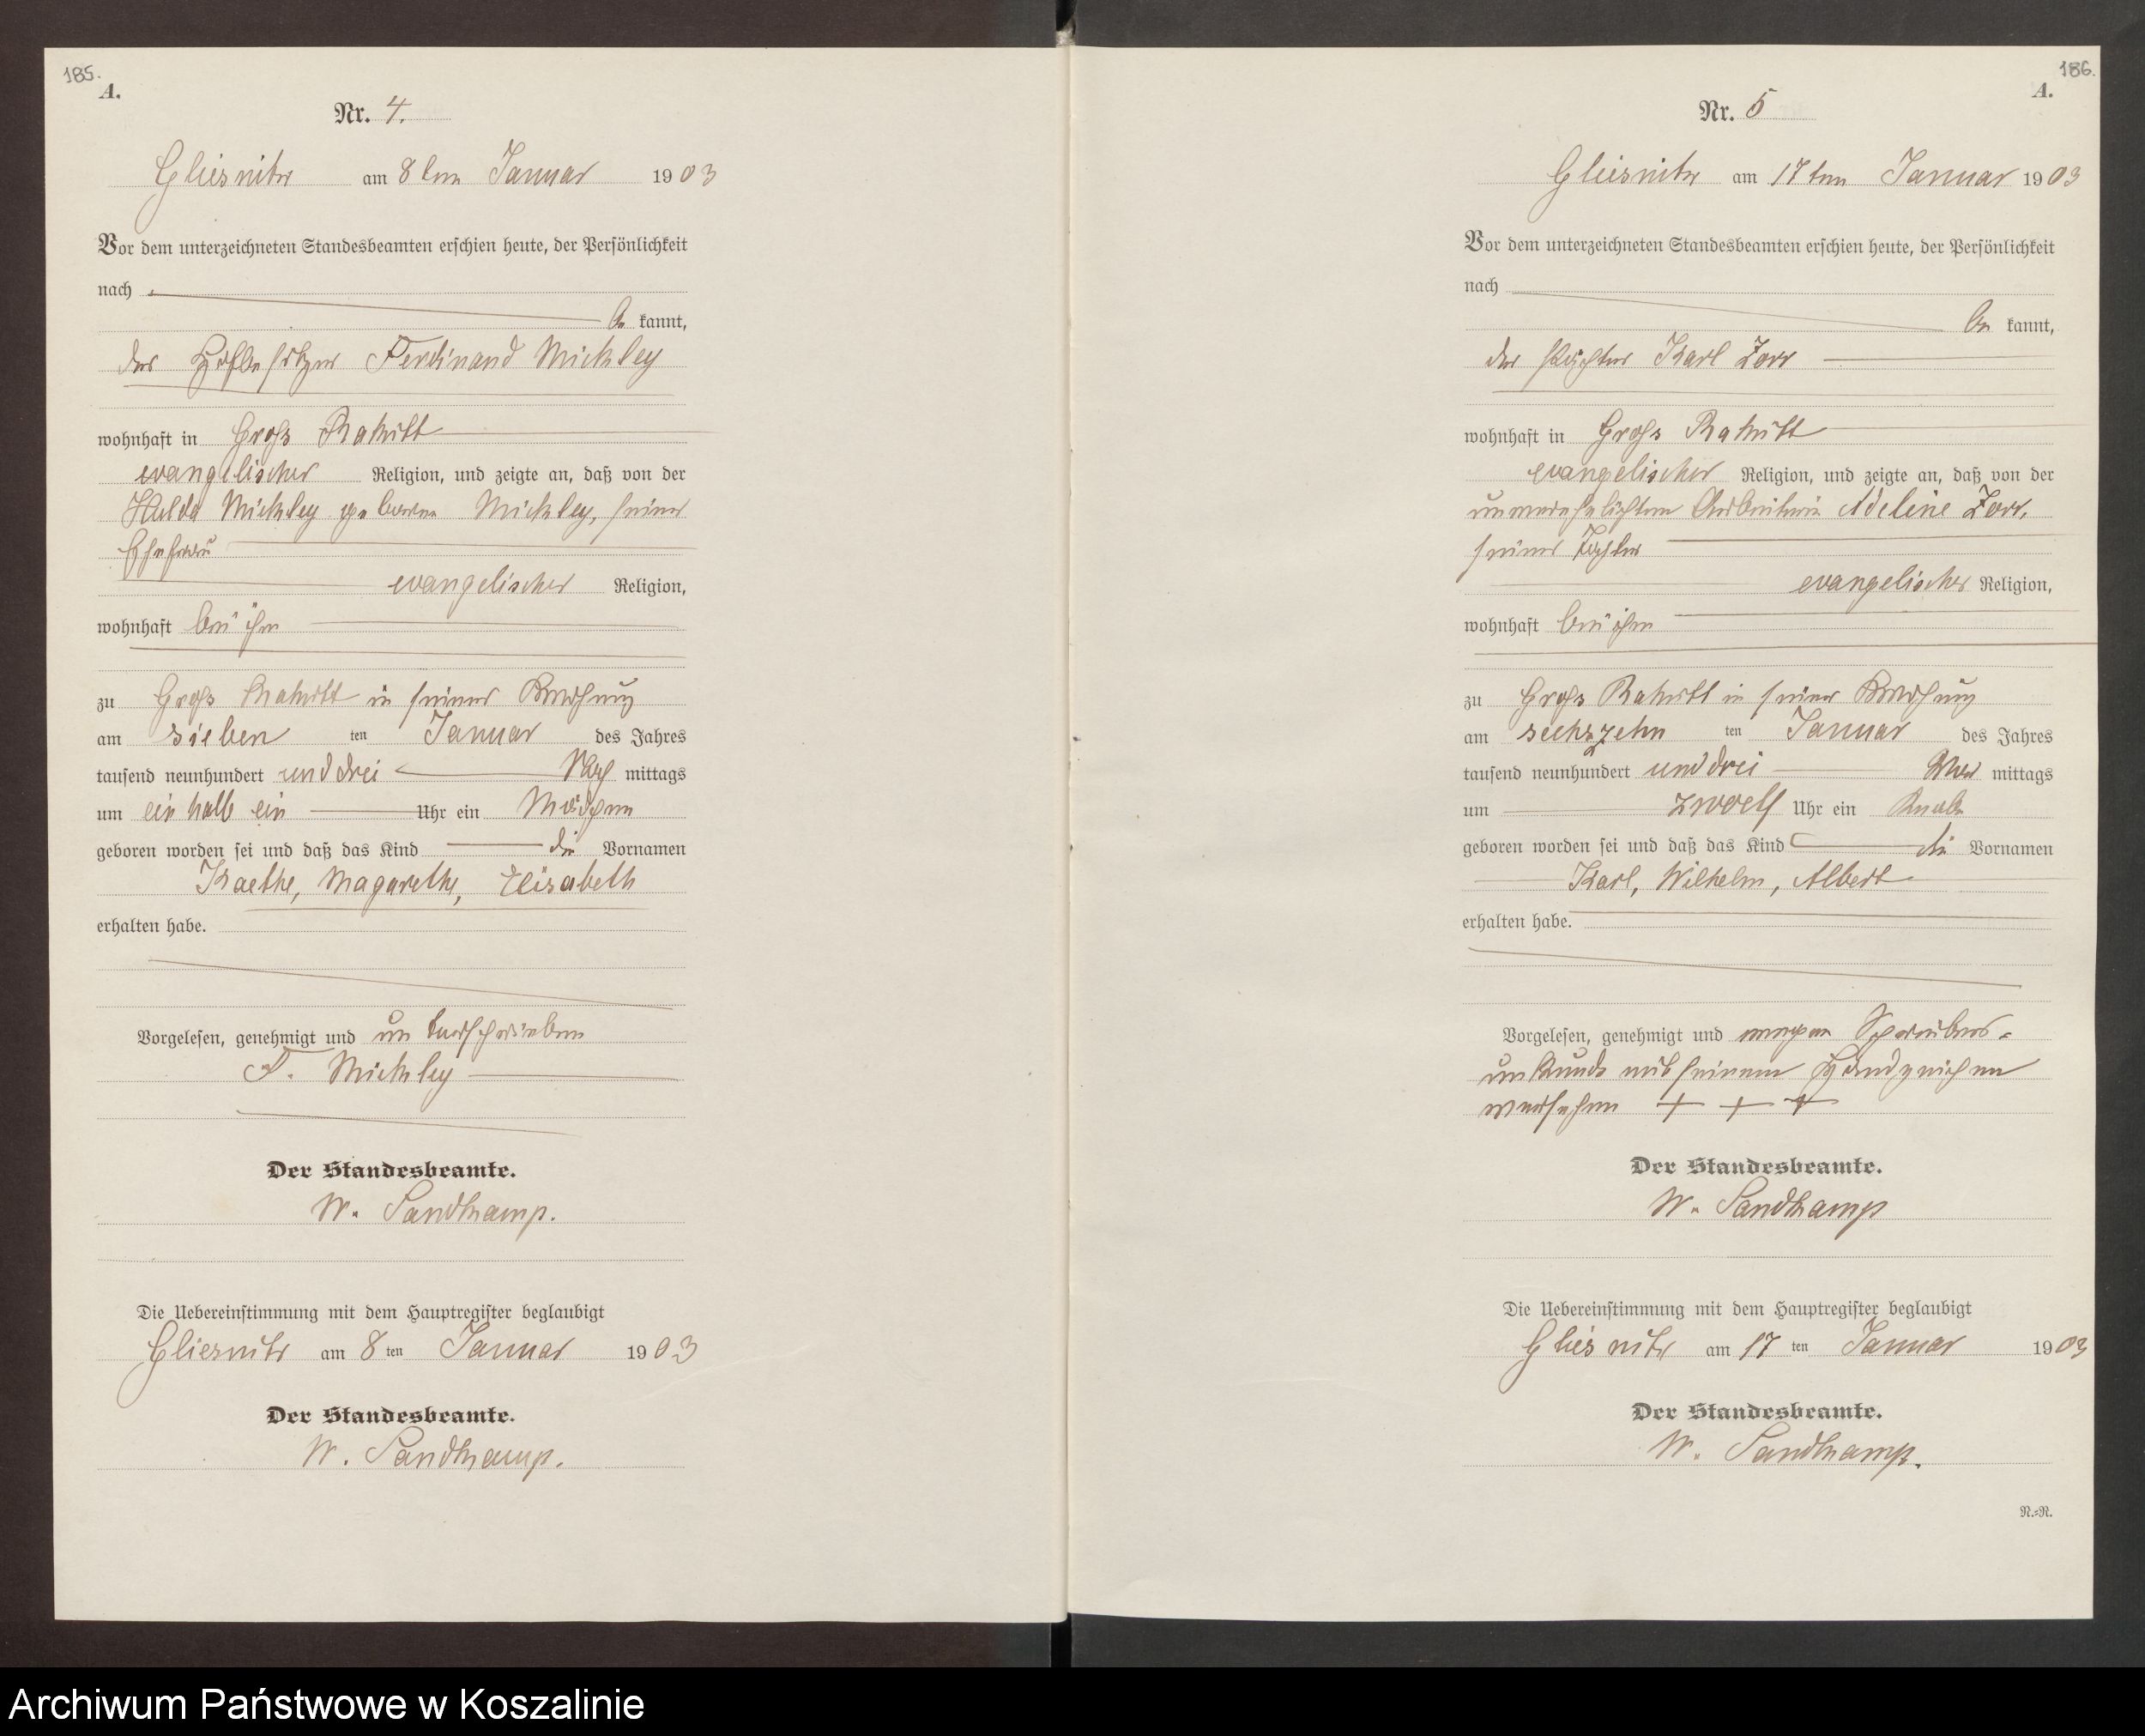 185.
A.
Nr. 4.
Gliesnitz am 8ten Januar 1903
Vor dem unterzeichneten Standesbeamten erschien heute, der Persönlichkeit
nach
be kannt,
der Hofbesitzer Ferdinand Mickley
wohnhaft in Gross Rakitt
evangelischer Religion, und zeigte an, daß von der
Hulda Mickley geborene Mickley, seiner
Ehefrau
evangelischer Religion,
wohnhaft bei ihm
zu Gross Rakitt in seiner Wohnung
am sieben ten Januar des Jahres
tausend neunhundert und drei Nach mittags
um ein halb ein Uhr ein Mädchen
geboren worden sei und daß das Kind die Vornamen
Kaethe, Magarethe, Elisabeth
erhalten habe.
Vorgelesen, genehmigt und unterschrieben
F. Mickley
Der Standesbeamte.
W. Sandkamp.
Die Uebereinstimmung mit dem Hauptregister beglaubigt
Gliesnitz am 8 ten Januar 1903
Der Standesbeamte.
W. Sandkamp.
186.
A.
Nr. 5
Gliesnitz am 17ten Januar 1903
Vor dem unterzeichneten Standesbeamten erschien heute, der Persönlichkeit
nach
be kannt,
der Pächter Karl Zorr
wohnhaft in Gross Rakitt
evangelischer Religion, und zeigte an, daß von der
unverehelichten Arbeiterin Adeline Zorr,
seiner Tochter
evangelischer Religion,
wohnhaft bei ihm
zu Gross Rakitt in seiner Wohnung
am sechszehn ten Januar des Jahres
tausend neunhundert und drei Vor mittags
um zwoelf Uhr ein Knabe
geboren worden sei und daß das Kind die Vornamen
Karl, Wilhelm, Albert
erhalten habe.
Vorgelesen, genehmigt und wegen Schreibens-
unkunde mit seinem Handzeichen
versehen + + +
Der Standesbeamte.
W. Sandkamp
Die Uebereinstimmung mit dem Hauptregister beglaubigt
Gliesnitz am 17 ten Januar 1903
Der Standesbeamte.
W. Sandkamp.
N.=R.
Archiwum Państwowe w Koszalinie